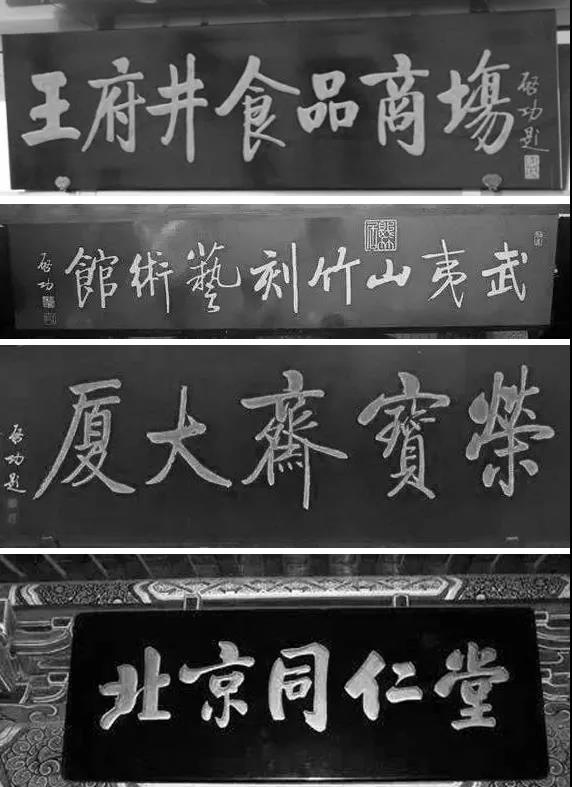 王府井食品商場
啓功題
武夷山竹刻藝術館
啓功
榮寶齋大厦
啓功題
北京同仁堂